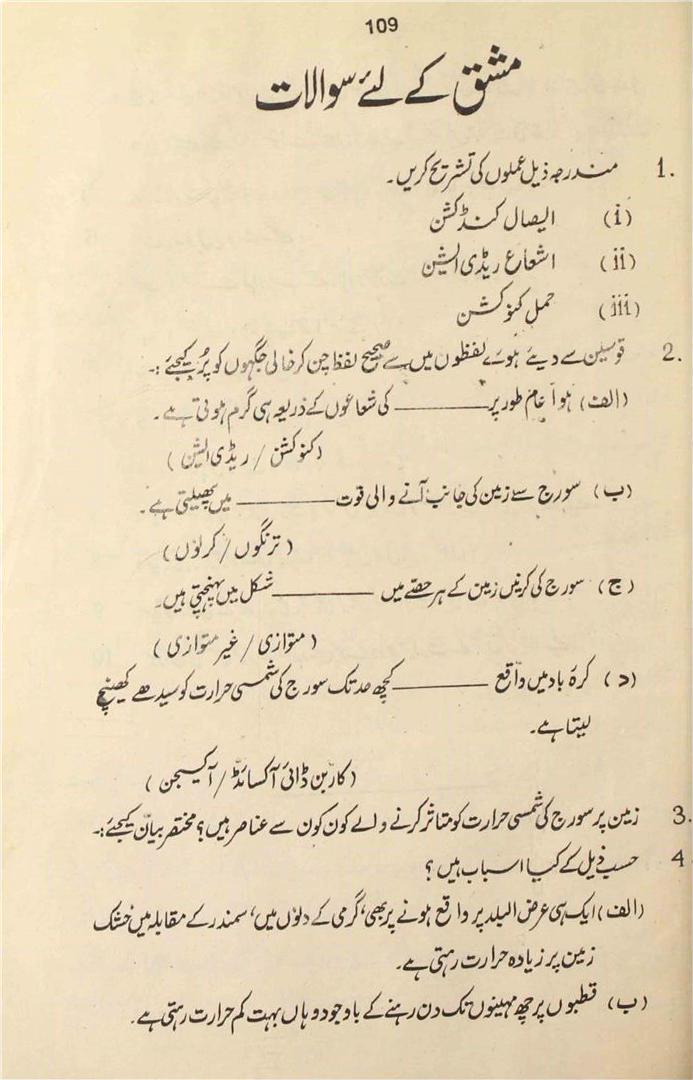 109
مشق کے لئے سوالات
1. مندرجہ ذیل عملوں کی تشریح کریں۔
(i) ایصال کنڈکشن
(ii) اشعاع ریڈی ایشن
(iii) حمل کنوکشن
2. قوسین سے دیئے ہوئے لفظوں میں سے صحیح لفظ چن کر خالی جگہوں کو پُر کیجئے :۔
(الف) ہوا عام طور پر ______ کی شعاعوں کے ذریعہ ہی گرم ہوتی ہے۔
(کنوکشن / ریڈی ایشن)
(ب) سورج سے زمین کی جانب آنے والی قوت ______ میں پھیلتی ہے۔
(ترنگوں / کرنوں)
(ج) سورج کی کرنیں زمین کے ہر حصّے میں ______ شکل میں پہنچتی ہیں۔
(متوازی / غیر متوازی)
(د) کرۂ باد میں واقع ______ کچھ حد تک سورج کی شمسی حرارت کو سیدھے کھینچ
لیتا ہے۔
(کاربن ڈائی آکسائڈ / آکسیجن)
3. زمین پر سورج کی شمسی حرارت کو متاثر کرنے والے کون کون سے عناصر ہیں؟ مختصر بیان کیجئے:۔
4. حسب ذیل کے کیا اسباب ہیں؟
(الف) ایک ہی عرض البلد پر واقع ہونے پر بھی، گرمی کے دنوں میں، سمندر کے مقابلہ میں خشک
زمین پر زیادہ حرارت رہتی ہے۔
(ب) قطبوں پر چھ مہینوں تک دن رہنے کے باوجود وہاں بہت کم حرارت رہتی ہے۔